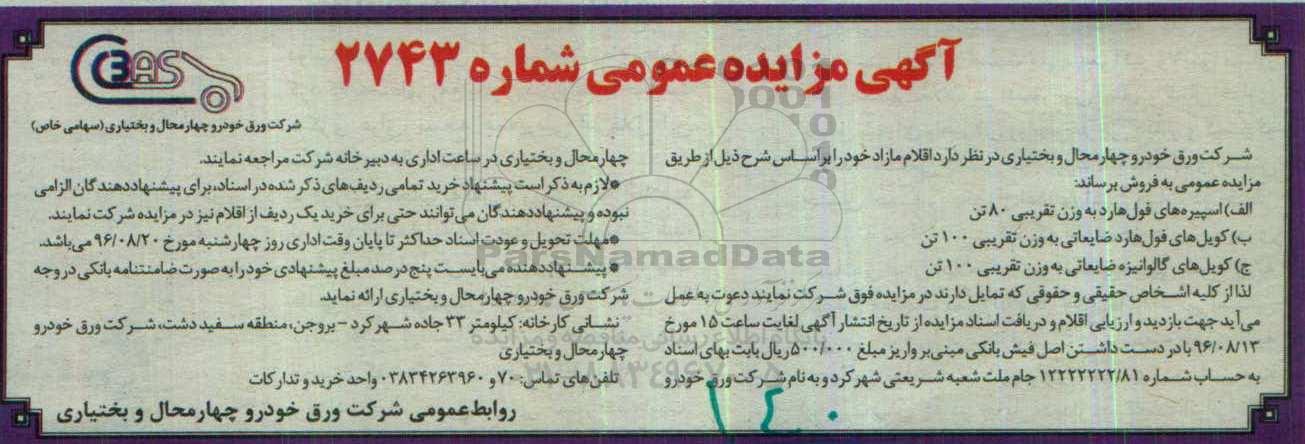 آگهی مزایده عمومی شماره ۲۷۴۳
CBAS
شرکت ورق خودرو چهارمحال و بختیاری (سهامی خاص)
شرکت ورق خودرو چهارمحال و بختیاری در نظر دارد اقلام مازاد خود را بر اساس شرح ذیل از طریق
مزایده عمومی به فروش برساند:
الف) اسپیره‌های فول‌هارد به وزن تقریبی ۸۰ تن
ب) کویل‌های فول‌هارد ضایعاتی به وزن تقریبی ۱۰۰ تن
ج) کویل‌های گالوانیزه ضایعاتی به وزن تقریبی ۱۰۰ تن
لذا از کلیه اشخاص حقیقی و حقوقی که تمایل دارند در مزایده فوق شرکت نمایند دعوت به عمل
می‌آید جهت بازدید و ارزیابی اقلام و دریافت اسناد مزایده از تاریخ انتشار آگهی لغایت ساعت ۱۵ مورخ
۹۶/۰۸/۱۳ با در دست داشتن اصل فیش بانکی مبنی بر واریز مبلغ ۵۰۰/۰۰۰ ریال بابت بهای اسناد
به حساب شماره ۱۲۲۲۲۲۲۲/۸۱ جام ملت شعبه شریعتی شهرکرد و به نام شرکت ورق خودرو
چهارمحال و بختیاری در ساعت اداری به دبیرخانه شرکت مراجعه نمایند.
●لازم به ذکر است پیشنهاد خرید تمامی ردیف‌های ذکر شده در اسناد، برای پیشنهاددهندگان الزامی
نبوده و پیشنهاددهندگان می‌توانند حتی برای خرید یک ردیف از اقلام نیز در مزایده شرکت نمایند.
●مهلت تحویل و عودت اسناد حداکثر تا پایان وقت اداری روز چهارشنبه مورخ ۹۶/۰۸/۲۰ می‌باشد.
●پیشنهاددهنده می‌بایست پنج درصد مبلغ پیشنهادی خود را به صورت ضامنتنامه بانکی در وجه
شرکت ورق خودرو چهارمحال و بختیاری ارائه نماید.
نشانی کارخانه: کیلومتر ۳۳ جاده شهرکرد – بروجن، منطقه سفیددشت، شرکت ورق خودرو
چهارمحال و بختیاری
تلفن‌های تماس: ۷۰ و ۰۳۸۳۴۲۶۳۹۶۰ واحد خرید و تدارکات
روابط عمومی شرکت ورق خودرو چهارمحال و بختیاری
ParsNamadData
۱۴۰